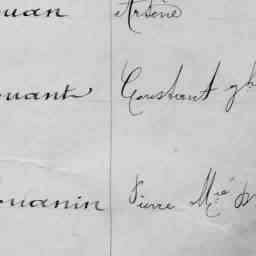 ouan Arsène
ouant Constant
ouanin Pierre M^ie